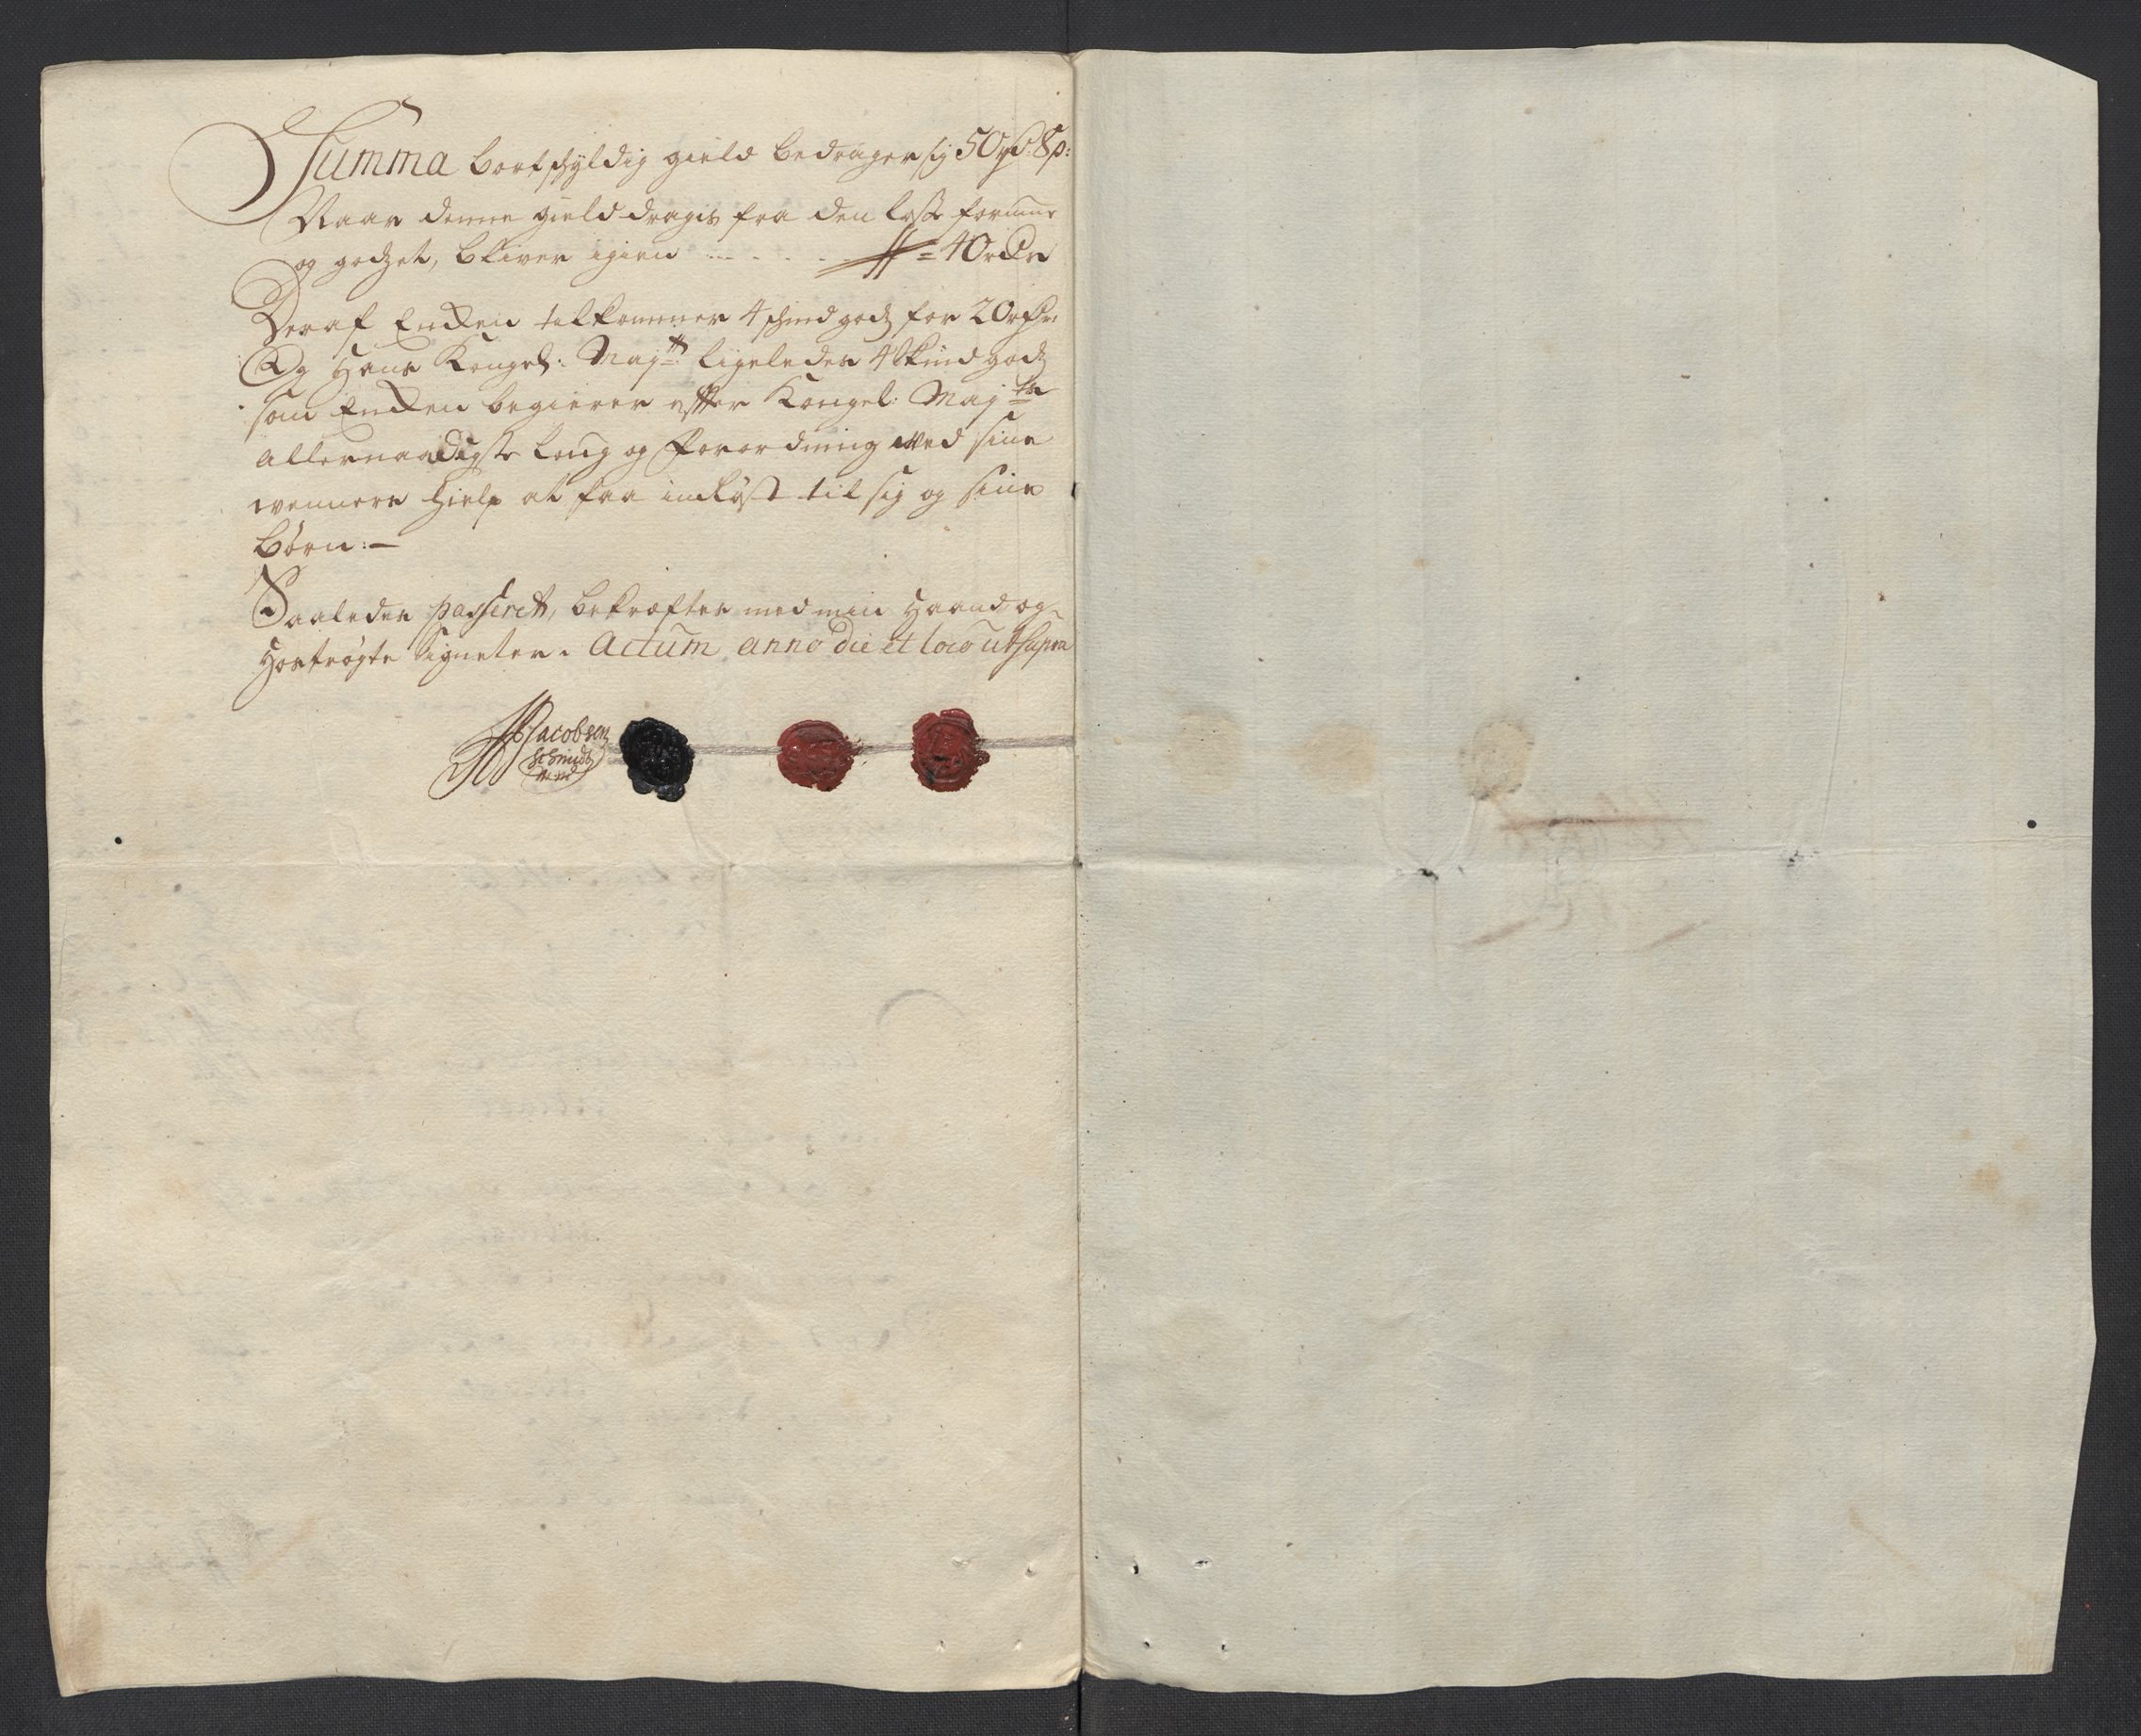 Summa bortschyldig gield bedrager sig 50 rd: 8 s:
Naar denne gield dragis fra den løsse formue
og godzet, bliver igien ... . . . = 40 rdr
Deraf Enken tilkommer 4 schind godz for 20 rdr:
Og Hans Kongel: Maytt: ligeledes 4 skind godz
som Enken begierer effter Kongel: Mayts
allernaadigste loug og forordning med sine
wenners hielp at faa indløst til sig og sine
børn:—
Saaledes passeret, bekræfter med min Haand og
hostrøgte Signeter. Actum anno die et loco ut supra
Jacobsen
Schmidt
mp